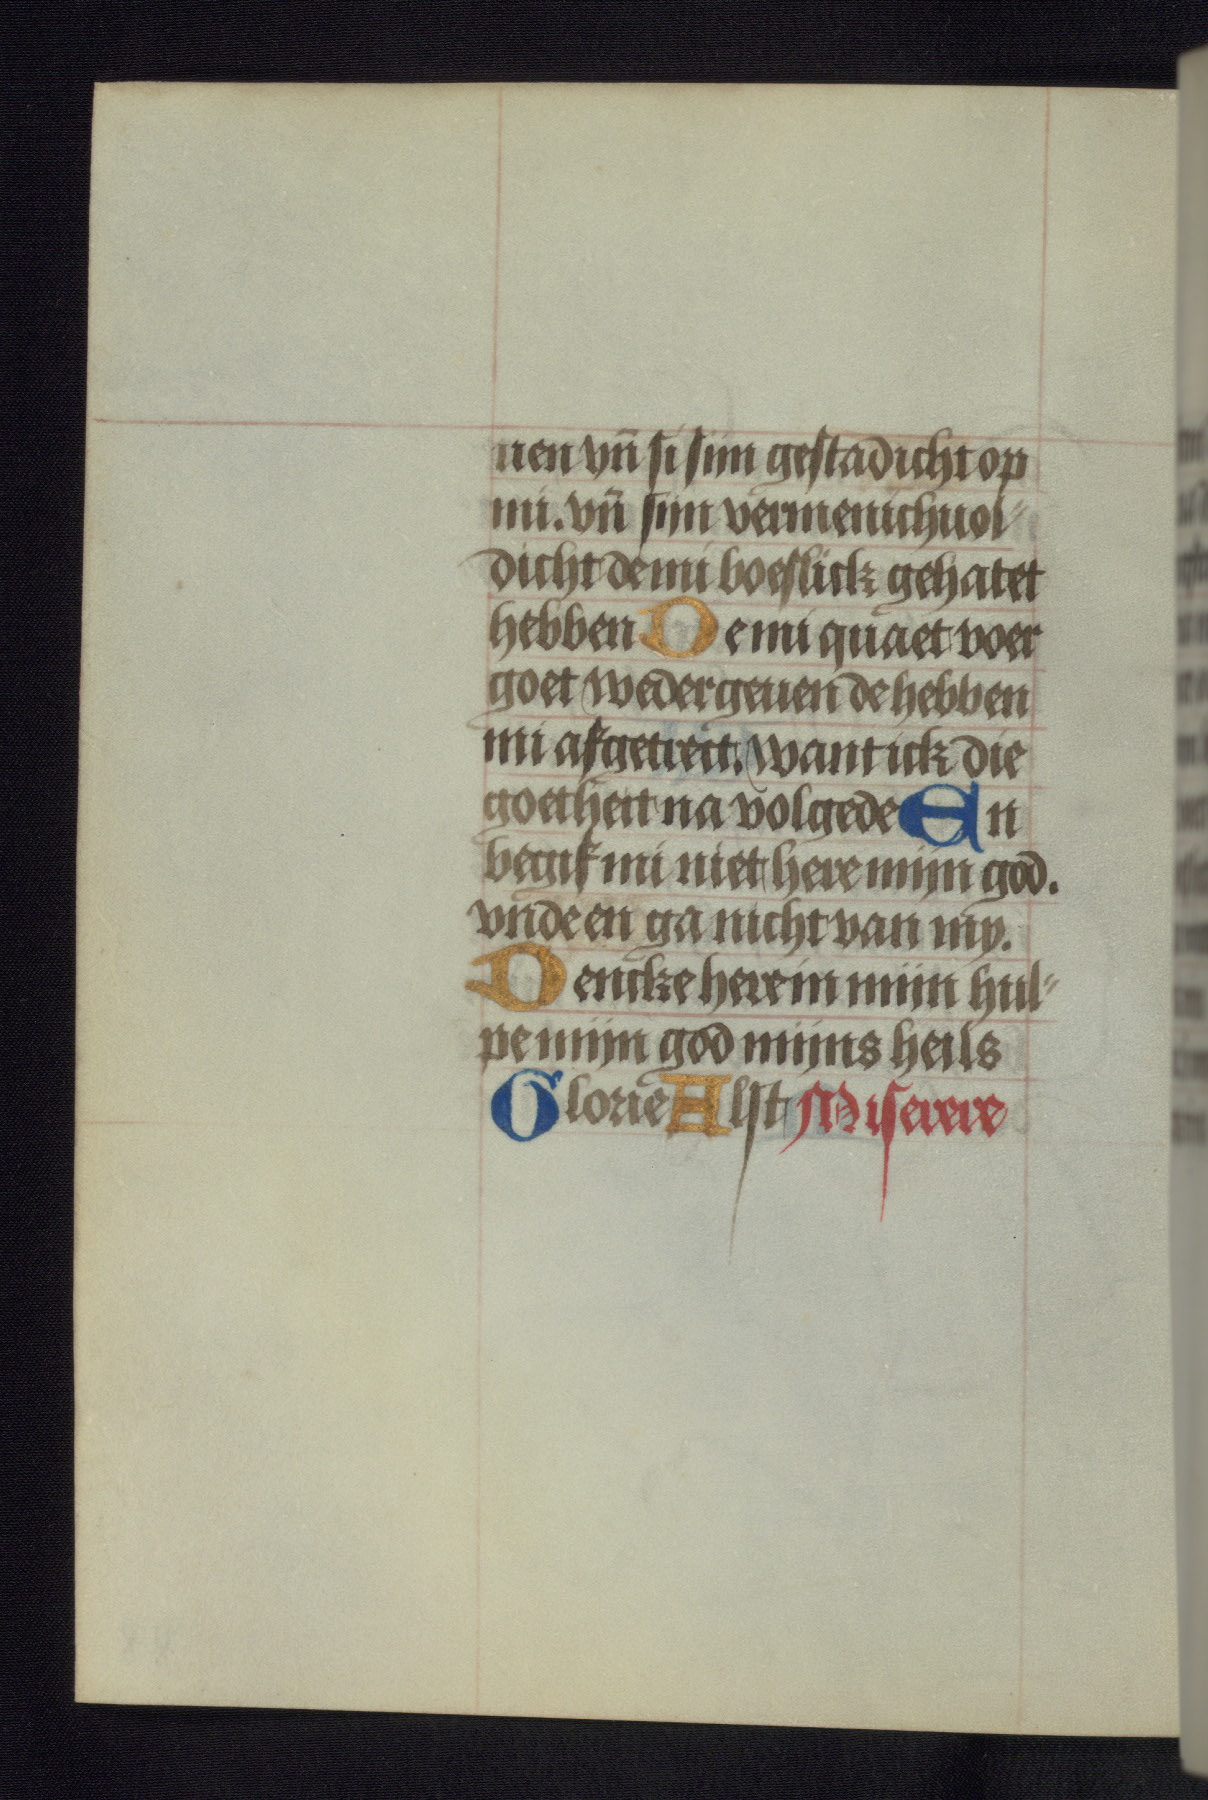 uen vn̄ si sijn gestadicht op
mi. vn̄ sijn vermenichuol-
dicht de mi boeslick gehatet
hebben De mi quaet voer
goet wedergeuen de hebben
mi afgetreit. Want ick die
goetheit na volgede En
begif mi niet here mijn god.
vnde en ga nicht van my.
Dencke here in mijn hul-
pe mijn god mijns heils
Glorie Alst Miserere